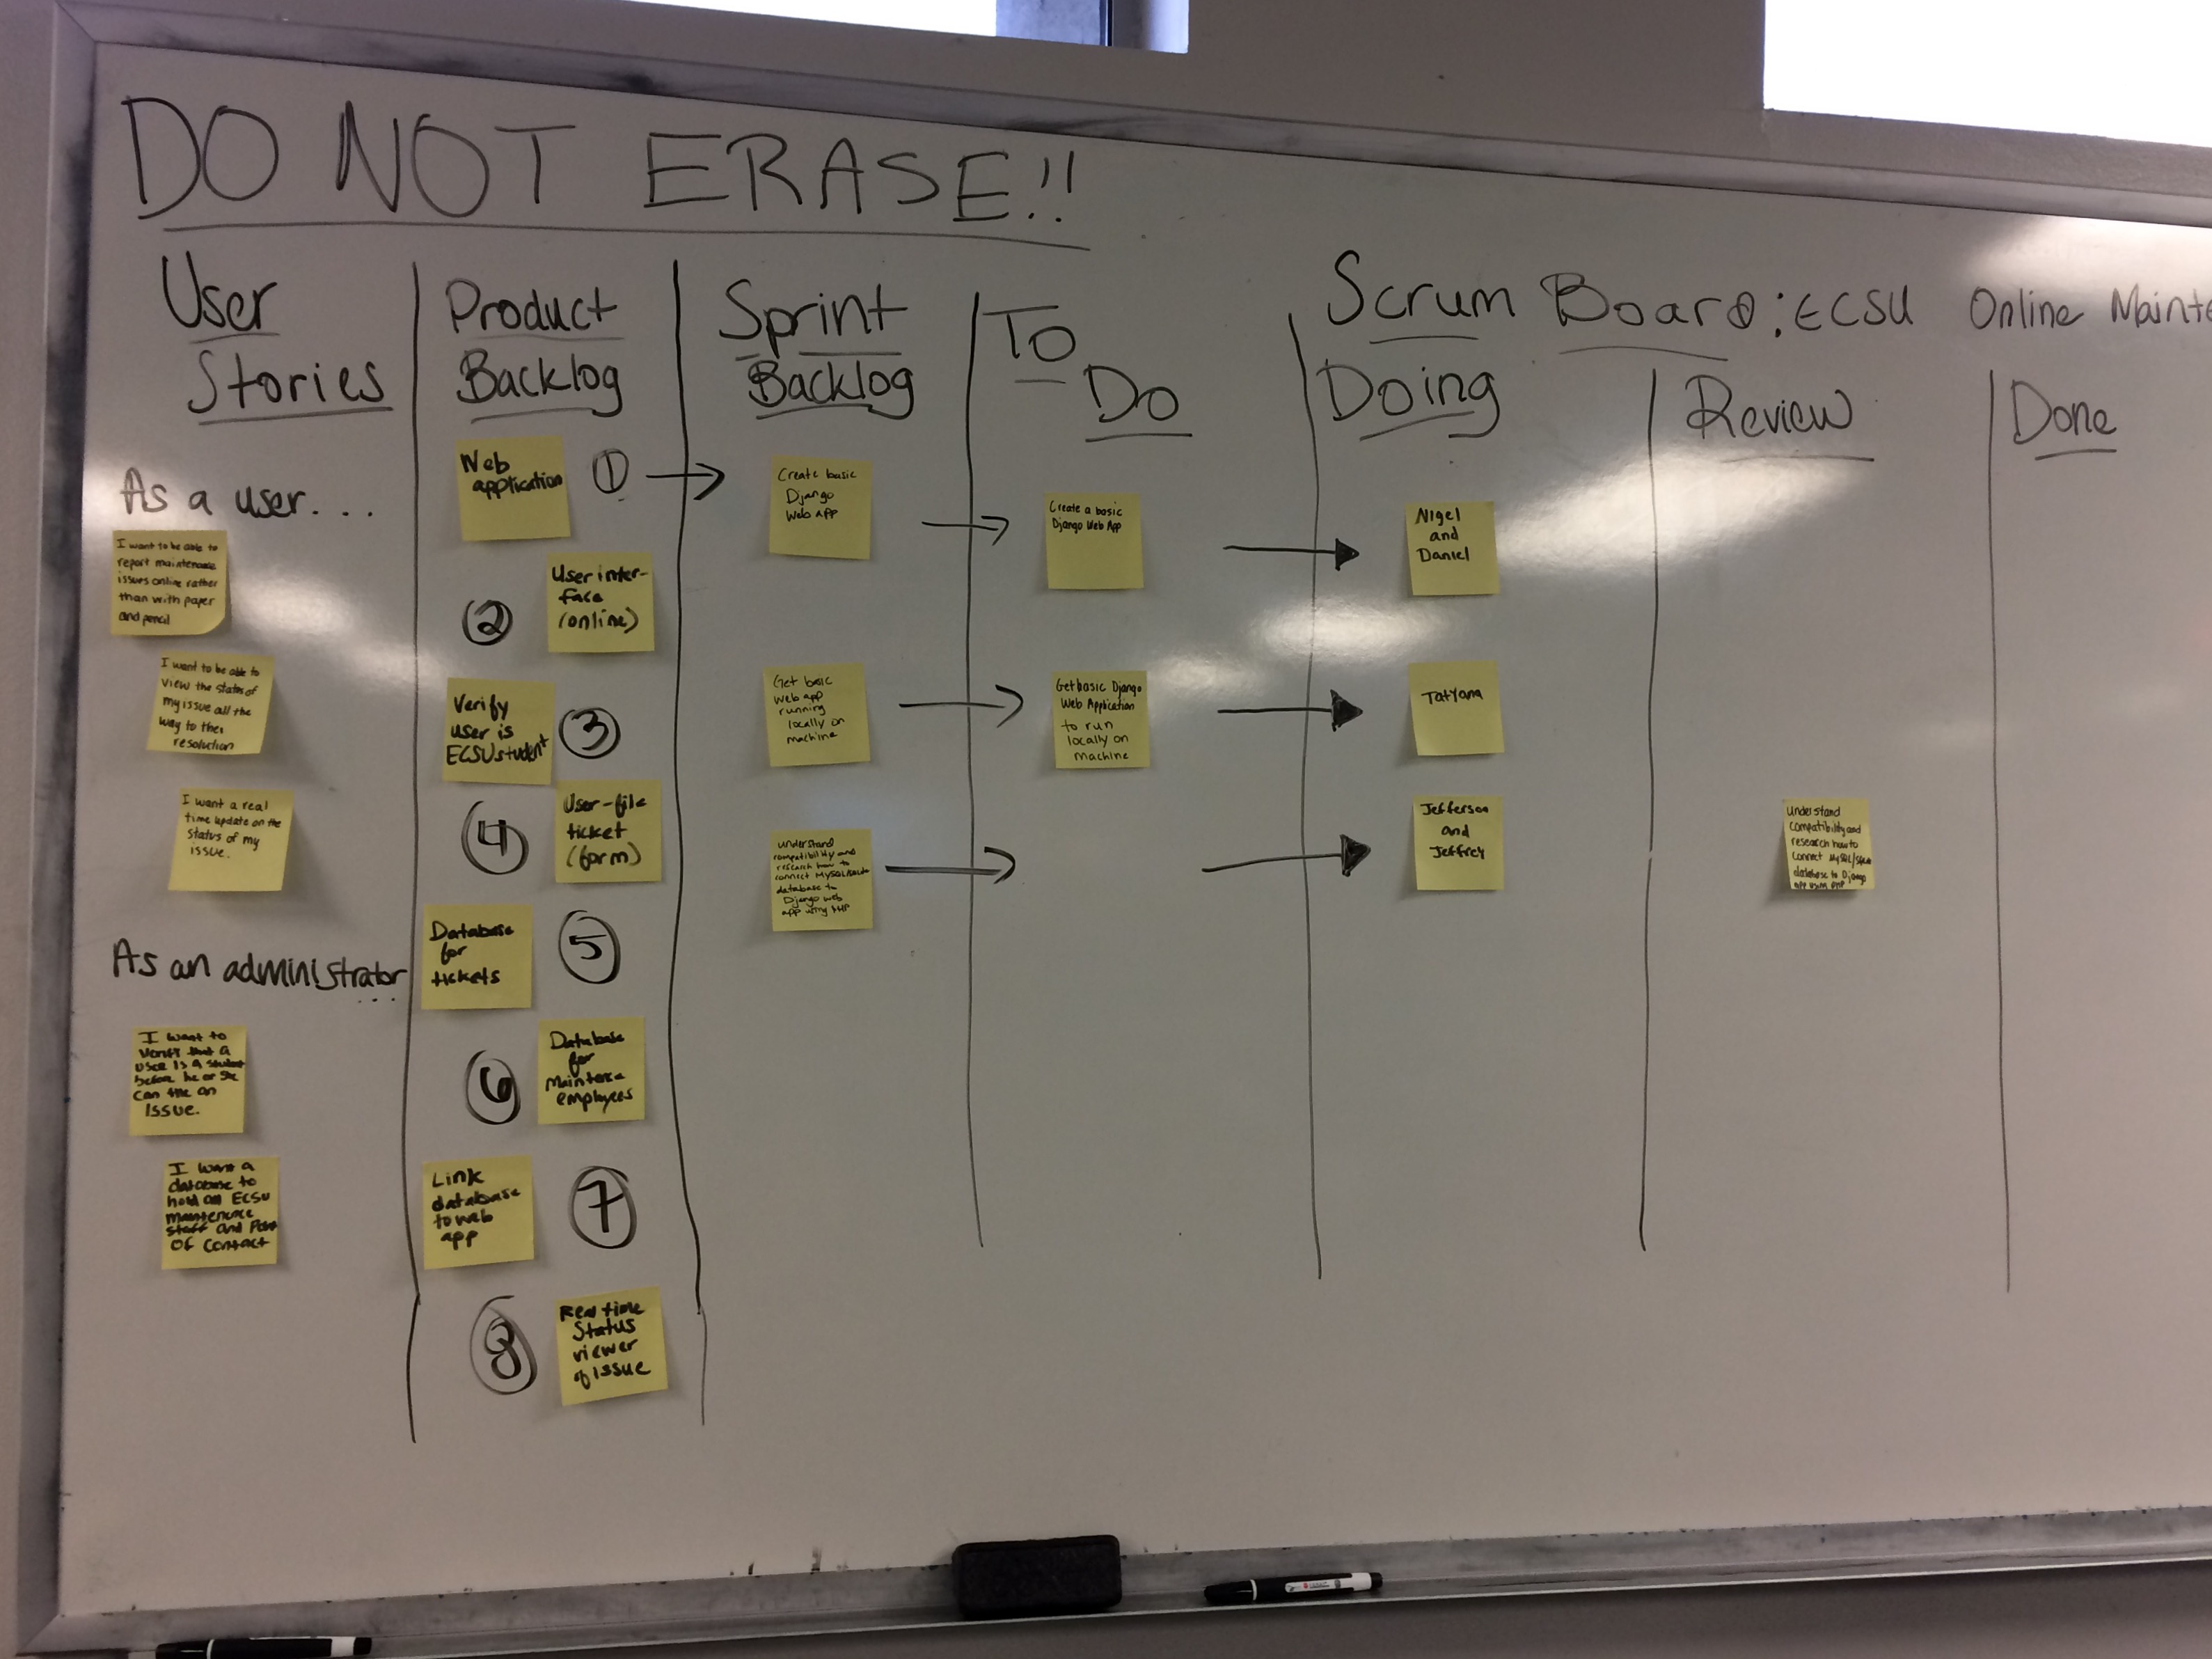 DO NOT ERASE!!
Scrum Board: ECSU Online Mainte
User
Stories
As a user...
I want to be able to
report maintenance
issues online rather
than with paper
and pencil
I want to be able to
view the status of
my issue all the
way to the
resolution
I want a real
time update on the
status of my
issue.
As an administrator
...
I want to
verify that a
user is a student
before he or she
can file an
issue.
I want a
database to
hold all ECSU
maintenance
staff and Point
of contact
Product
Backlog
Web
application
1
2
User inter-
face
(online)
Verify
user is
ECSU student
3
4
User-file
ticket
(form)
Database
for
tickets
5
6
Database
for
employees
Link
database
to web
app
7
8
Real time
Status
viewer
of issue
Sprint
Backlog
Create basic
Django
Web app
Get basic
web app
running
locally on
machine
understand
compatibility and
research how to
connect
database to
Django web
app using PHP
To
Do
Create a basic
Django Web App
Get basic Django
Web Application
to run
locally on
machine
Doing
Nigel
and
Daniel
Tatyana
Jefferson
and
Jeffrey
Review
Understand
compatibility and
research how to
connect
database to Django
app using PHP
Done